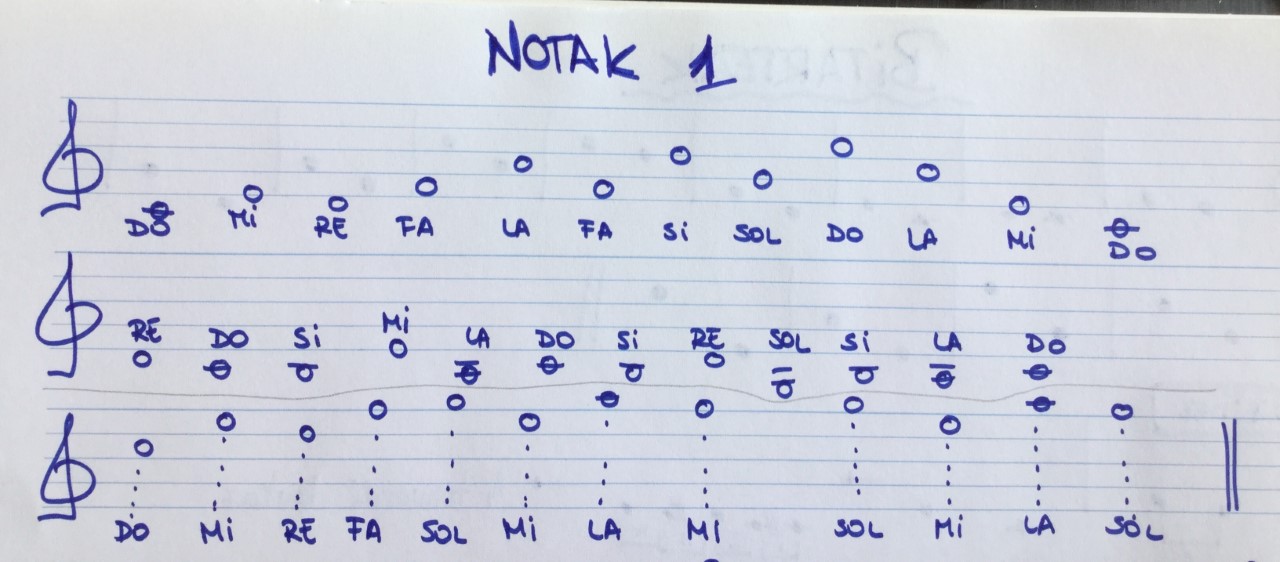 NOTAK 1
DO Mi RE FA LA FA Si SOL DO LA Mi DO
RE DO Si Mi LA DO Si RE SOL Si LA DO
DO Mi RE FA SOL Mi LA Mi SOL Mi LA SOL